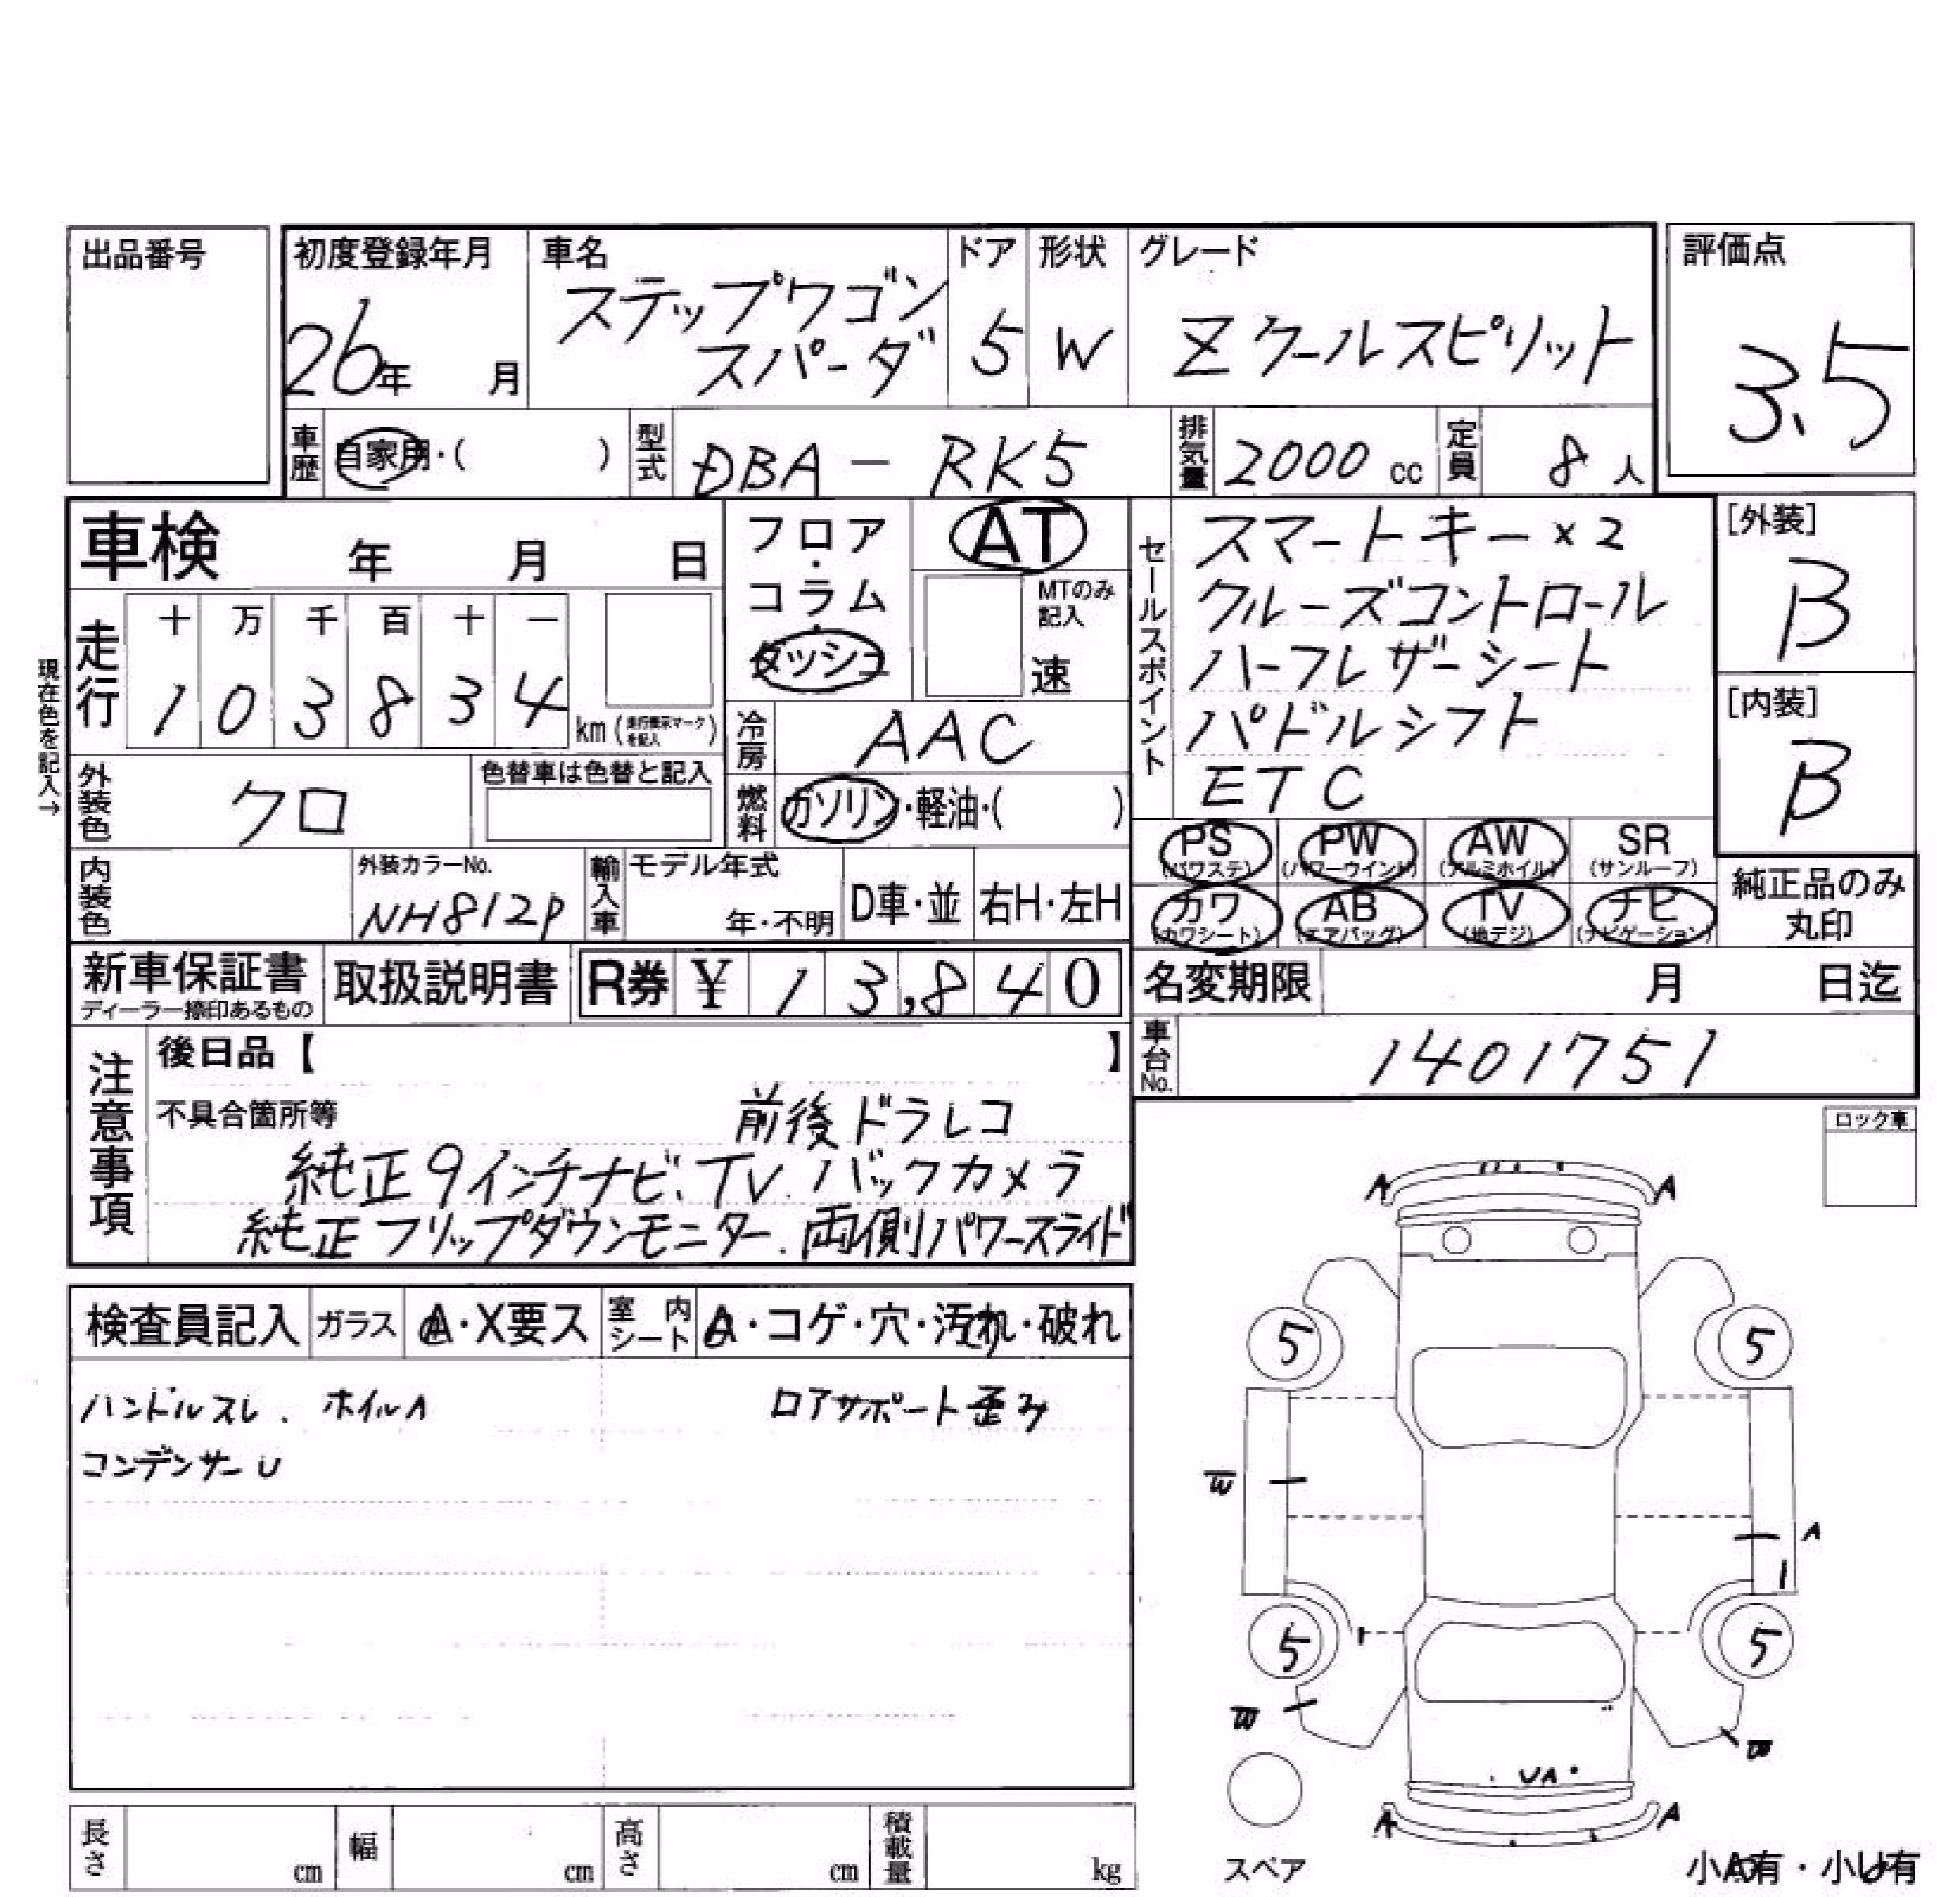 出品番号
初度登録年月 車名 ドア 形状 グレード 評価点
26年 月 ステップワゴン スパーダ 5 W Zクールスピリット 3.5
車歴 自家用・( ) 型式 DBA - RK5 排気量 2000 cc 定員 8 人
車検 年 月 日
フロア・コラム・ダッシュ
AT
MTのみ記入
速
セールスポイント
スマートキー×2
クルーズコントロール
ハーフレザーシート
パドルシフト
ETC
[外装]
B
[内装]
B
現在色を記入→
走行 十 万 千 百 十 一
1 0 3 8 3 4 km (走行表示マークを記入)
冷房 AAC
外装色 クロ 色替車は色替と記入
燃料 ガソリン・軽油・( )
PS (パワステ) PW (パワーウインド) AW (アルミホイル) SR (サンルーフ)
カワ (カワシート) AB (エアバッグ) TV (地デジ) ナビ (ナビゲーション)
純正品のみ丸印
内装色 外装カラーNo. NH812P 輸入車 モデル年式 年・不明 D車・並 右H・左H
新車保証書 ディーラー捺印あるもの 取扱説明書 R券 ¥ 1 3,8 4 0
名変期限 月 日迄
車台No. 1401751
注意事項
後日品【 】
不具合箇所等 前後ドラレコ
純正9インチナビ、TV、バックカメラ
純正フリップダウンモニター、両側パワースライド
ロック車
検査員記入 ガラス A・X要ス 室内シート A・コゲ・穴・汚れ・破れ
ハンドルスレ、ホイルA ロアサポート歪み
コンデンサーU
A A
5 5
W
A
5 5
W W
UA
A A
スペア
小A有・小U有
長さ cm 幅 cm 高さ cm 積載量 kg